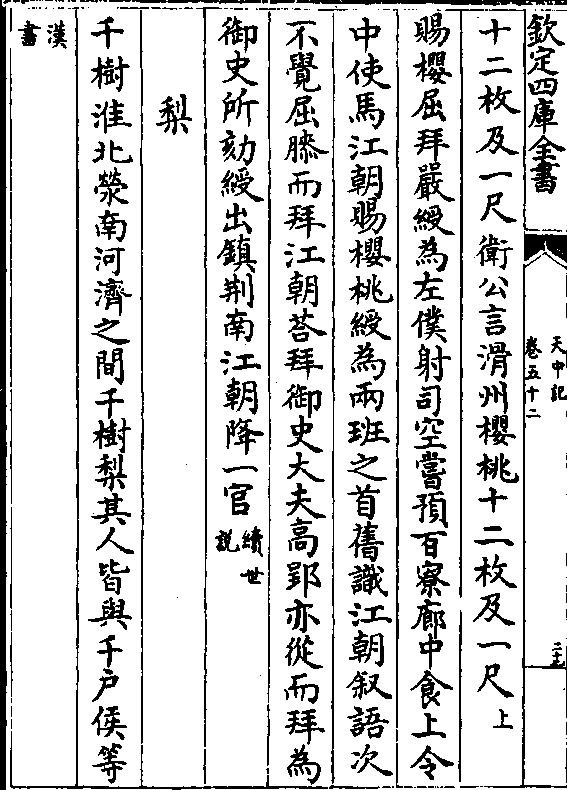 欽定四庫全書
天中記
卷五十二
二十九
十二枚及一尺衛公言滑州櫻桃十二枚及一尺上
賜櫻屈拜嚴綬為左僕射司空嘗預百寮廊中食上令
中使馬江朝賜櫻桃綬為兩班之首舊識江朝叙語次
不覺屈膝而拜江朝荅拜御史大夫高郢亦從而拜為
御史所劾綬出鎮荆南江朝降一官續世說
梨
千樹淮北滎南河濟之間千樹梨其人皆與千户侯等
漢書